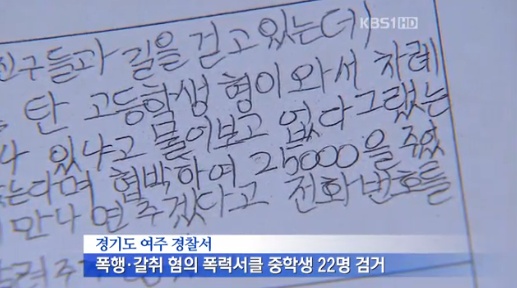 KBS1HD
친구들과 길을 걷고 있는데
탄 고등학생 형이와서 차례
있냐고 물어보고 없다그랬는
는다며 협박하여 25000을 주었
만나면 주겠다고 전화번호를
경기도 여주 경찰서
폭행·갈취 혐의 폭력서클 중학생 22명 검거